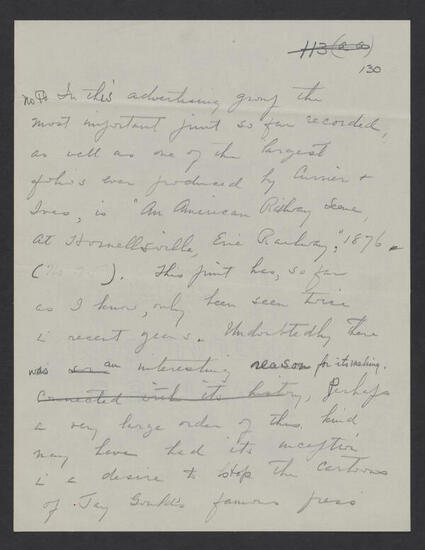 113 (a a)
130
no ¶ In this advertising group the
most important print so far recorded,
as well as one of the largest
folios ever produced by Currier &
Ives, is "An American Railway Scene,
at Hornellsville, Erie Railway", 1876
( ). This print has, so far
as I know, only been seen twice
in recent years. Undoubtedly there
was an interesting reason for its making.
connected with its history, Perhaps
a very large order of this kind
may have had its inception
in a desire to stop the cartoons
of Jay Gould's famous press